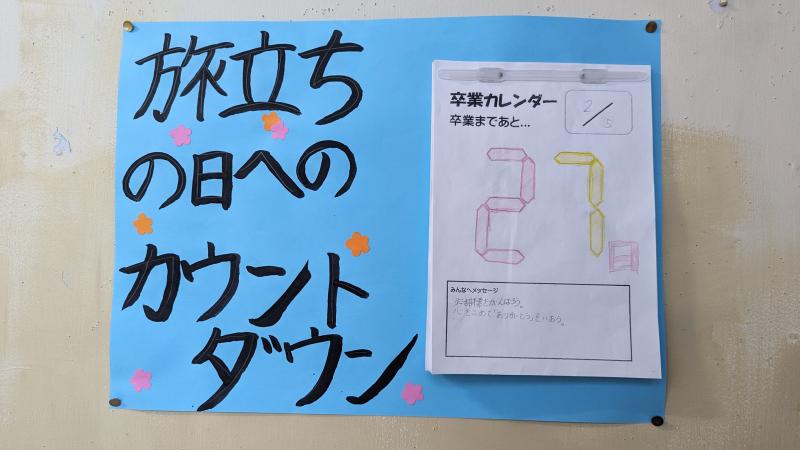 旅立ち
の日への
カウント
ダウン
卒業カレンダー
2/5
卒業まであと...
27日
みんなへメッセージ
心をこめて「ありがとう」をいおう。